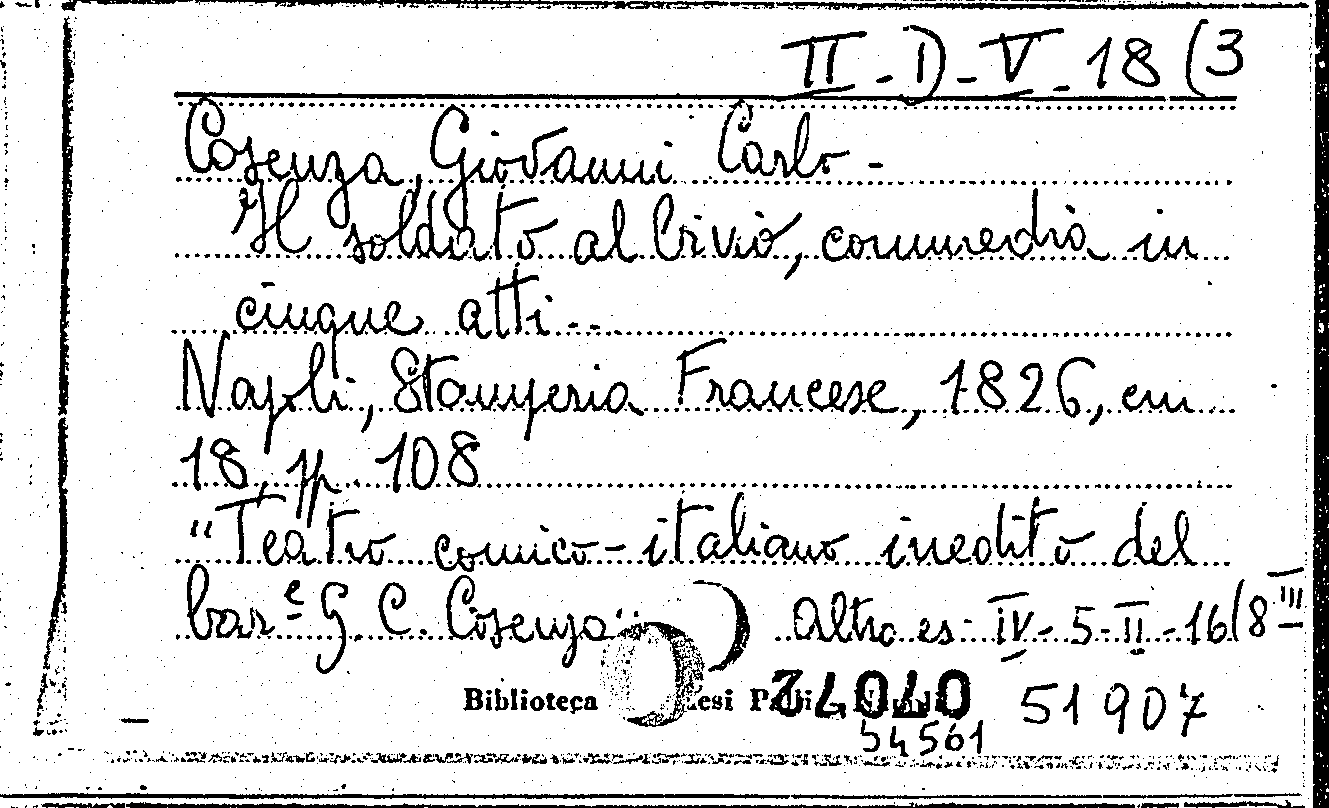 II - D - V - 18 (3
Cosenza, Giovanni Carlo -
Il soldato al bivio, commedia in
cinque atti. -
Napoli, Stamperia Francese, 1826, em
18, pp. 108
"Teatro comico-italiano inedito del
bar.e G. C. Cosenza" ) Altro es. IV - 5 - II - 16 (8 III
Biblioteca
51907
54561